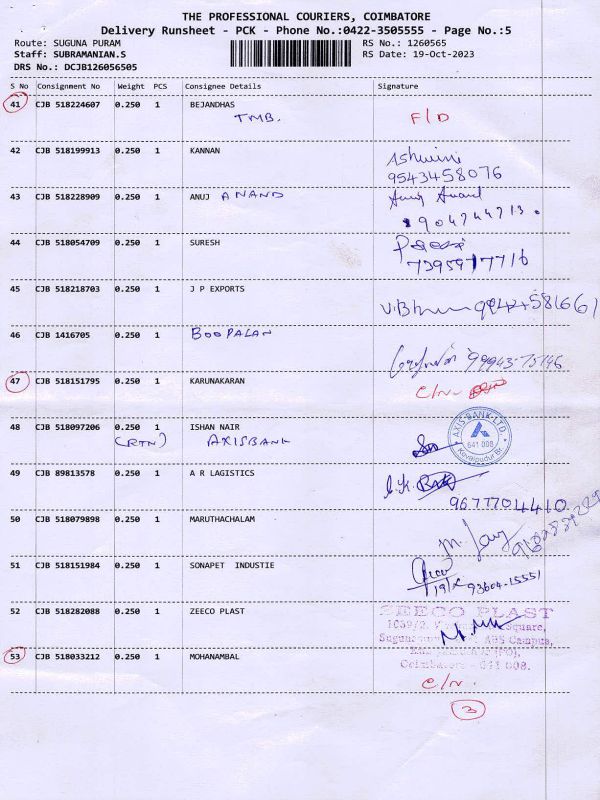 THE PROFESSIONAL COURIERS, COIMBATORE
Delivery Runsheet - PCK - Phone No.:0422-3505555 - Page No.:5
Route: SUGUNA PURAM RS No.: 1260565
Staff: SUBRAMANIAN.S RS Date: 19-Oct-2023
DRS No.: DCJB126056505
S No Consignment No Weight PCS Consignee Details Signature
41 CJB 518224607 0.250 1 BEJANDHAS
TMB. F/D
42 CJB 518199913 0.250 1 KANNAN
Ashwini
9543458076
43 CJB 518228909 0.250 1 ANUJ ANAND
Anuj Anand
44 CJB 518054709 0.250 1 SURESH
45 CJB 518218703 0.250 1 J P EXPORTS
46 CJB 1416705 0.250 1 BOOPALAN
99943-75146
47 CJB 518151795 0.250 1 KARUNAKARAN
C/N.
48 CJB 518097206 0.250 1 ISHAN NAIR
(RTN) AXISBANK
AXIS BANK LTD.
641 008
Kovaipudur Br.
49 CJB 89813578 0.250 1 A R LAGISTICS
9677704410
50 CJB 518079898 0.250 1 MARUTHACHALAM
51 CJB 518151984 0.250 1 SONAPET INDUSTIE
93604-15551
52 CJB 518282088 0.250 1 ZEECO PLAST
ZEECO PLAST
Square,
ABS Campus,
Coimbatore - 641 008.
53 CJB 518033212 0.250 1 MOHANAMBAL
C/N.
3